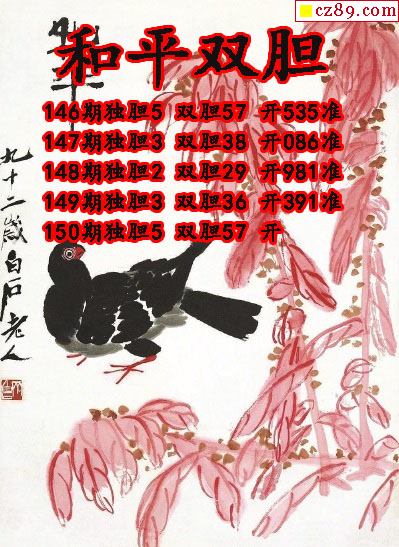 cz89.com
和平双胆
146期独胆5 双胆57 开535准
147期独胆3 双胆38 开086准
148期独胆2 双胆29 开981准
149期独胆3 双胆36 开391准
150期独胆5 双胆57 开
九十二歲白石老人